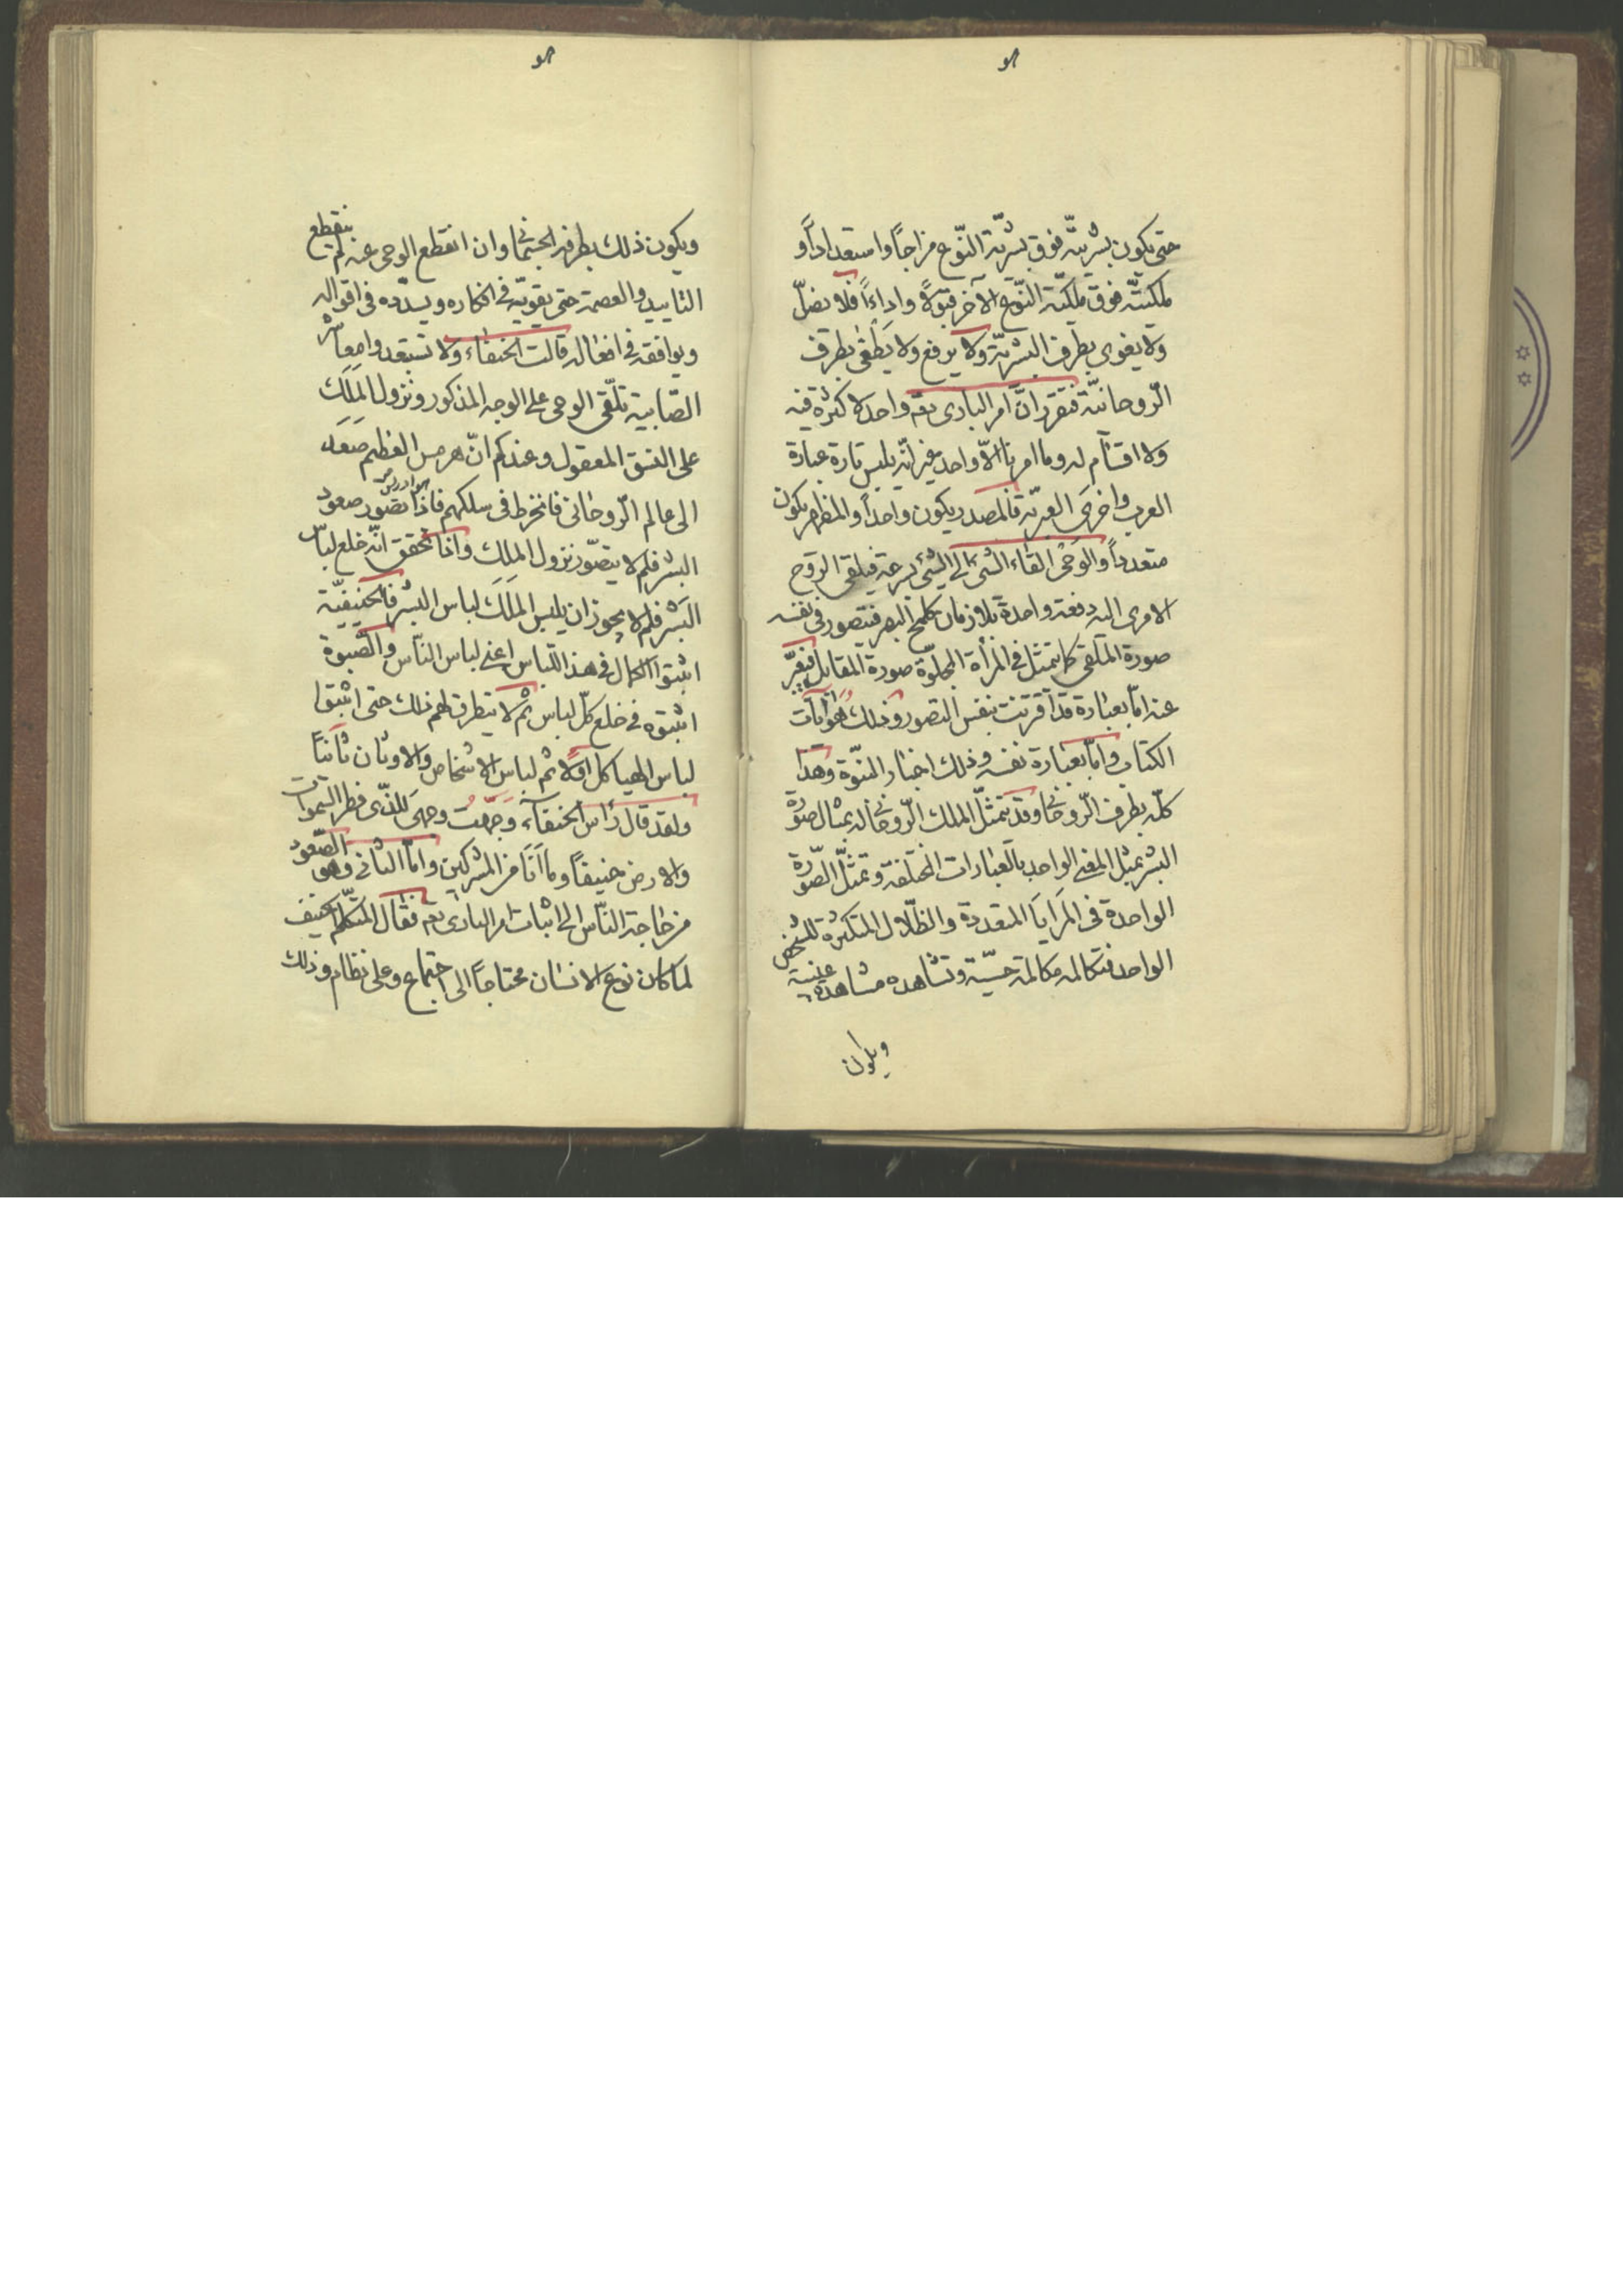 حتى يكون بشريته فوق بشرية النوع مزاجاً واستعداداً و
ملكيته فوق ملكية النوع الآخر قبولاً واداءاً فلا يضلّ
ولا يغوى بطرف البشرية ولا يزيغ ولا يطغى بطرف
الروحانية فتقرر انّ امر البارى تعه واحد لا كثرة فيه
ولا اقسام له وما امرنا الاّ واحد غير انّه يلبس تارة عبارة
العرب واخرى العبريّة فالمصدر يكون واحداً والمظهر يكون
متعدداً والوحى القاء الشئ الى الشئ بسرعة فيلقى الروح
الامرى اليه دفعة واحدة بلا زمان كلمح البصر فيتصور فى نفسه
صورة الملقى كما يتمثل فى المرأة المجلوّة صورة المقابل فيعبّر
عنه امّا بعبارة قد اقترنت بنفس التصور وذلك هو ايات
الكتاب وامّا بعبارة نفسه وذلك اخبار النبوّة وهذا
كلّه بطرفه الروحانى وقد يتمثّل الملك الروحانى له بمثال صورة
البشر تمثل المعنى الواحد بالعبارات المختلفة وتمثّل الصورة
الواحدة فى المرايا المتعددة والظلال المتكثرة للشخص
الواحد فتكالمه مكالمة حسّية وتشاهده مشاهدة عينية
ويكون
ويكون ذلك بطرفه الجسمانى وان انقطع الوحى عنه لم ينقطع
التاييد والعصمة حتى يقويّه فى افكاره ويسدّده فى اقواله
ويوافقه فى افعاله قالت الحنفاء ولا تستبعدوا معاشر
الصّابية تلّقى الوحى على الوجه المذكور ونزول الملك
على النسق المعقول وعندكم انّ هرمس العظيم صعد
هو ادريس
الى عالم الرّوحانى فانخرط فى سلكهم فاذا تصور صعود
البشر فلم لا يتصّور نزول الملك واذا تحقق انّه خلع لباس
البشر فلم لا يجوز ان يلبس الملك لباس البشر فالحنيفيّة
اثبتوا الكمال فى هذا اللّباس اعنى لباس النّاس والصّبوة
اثبتوه فى خلع كلّ لباس ثم لا يتطرق لهم ذلك حتى اثبتوا
لباس الهياكل اوّلاً ثم لباس الاشخاص والاوثان ثانياً
ولقد قال رأس الحنفاء وجّهت وجهى للذّى فطر السّموات
والارض حنيفاً وما انا من المشركين وامّا الثانى وهو الصّعود
من حاجة النّاس الى اثبات امر البارى تعه فقال المتكلّم الحنيف
لما كان نوع الانسان محتاجاً الى اجتماع وعلى نظام وذلك